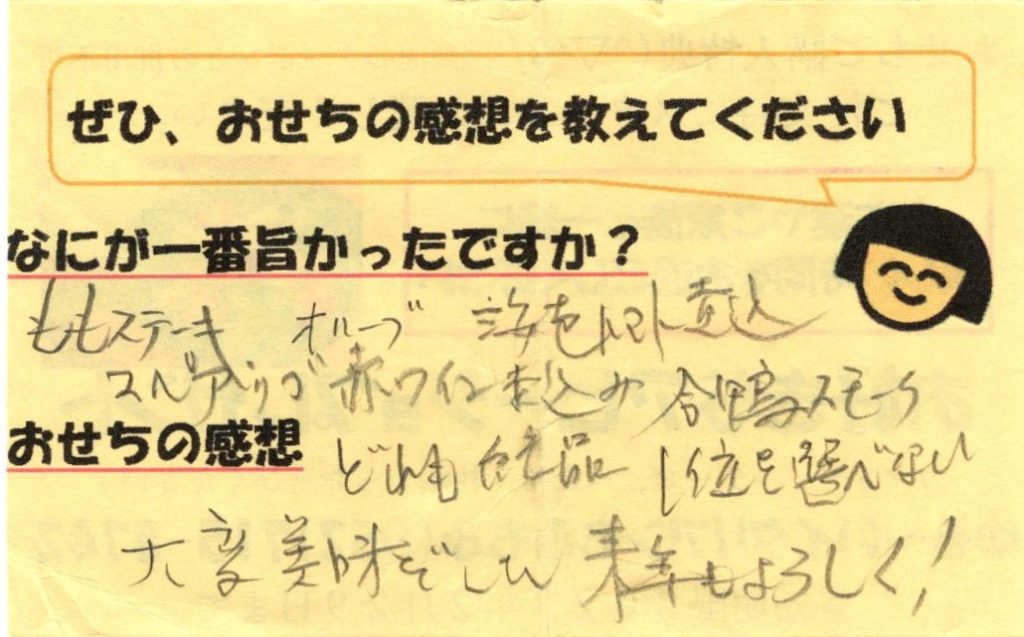 ぜひ、おせちの感想を教えてください
なにが一番旨かったですか？
ももステーキ オリーブ 煮込
スペアリブ赤ワイン煮込み 合鴨スモーク
おせちの感想
どれも絶品 1位を選べない
大変美味でした 来年もよろしく！